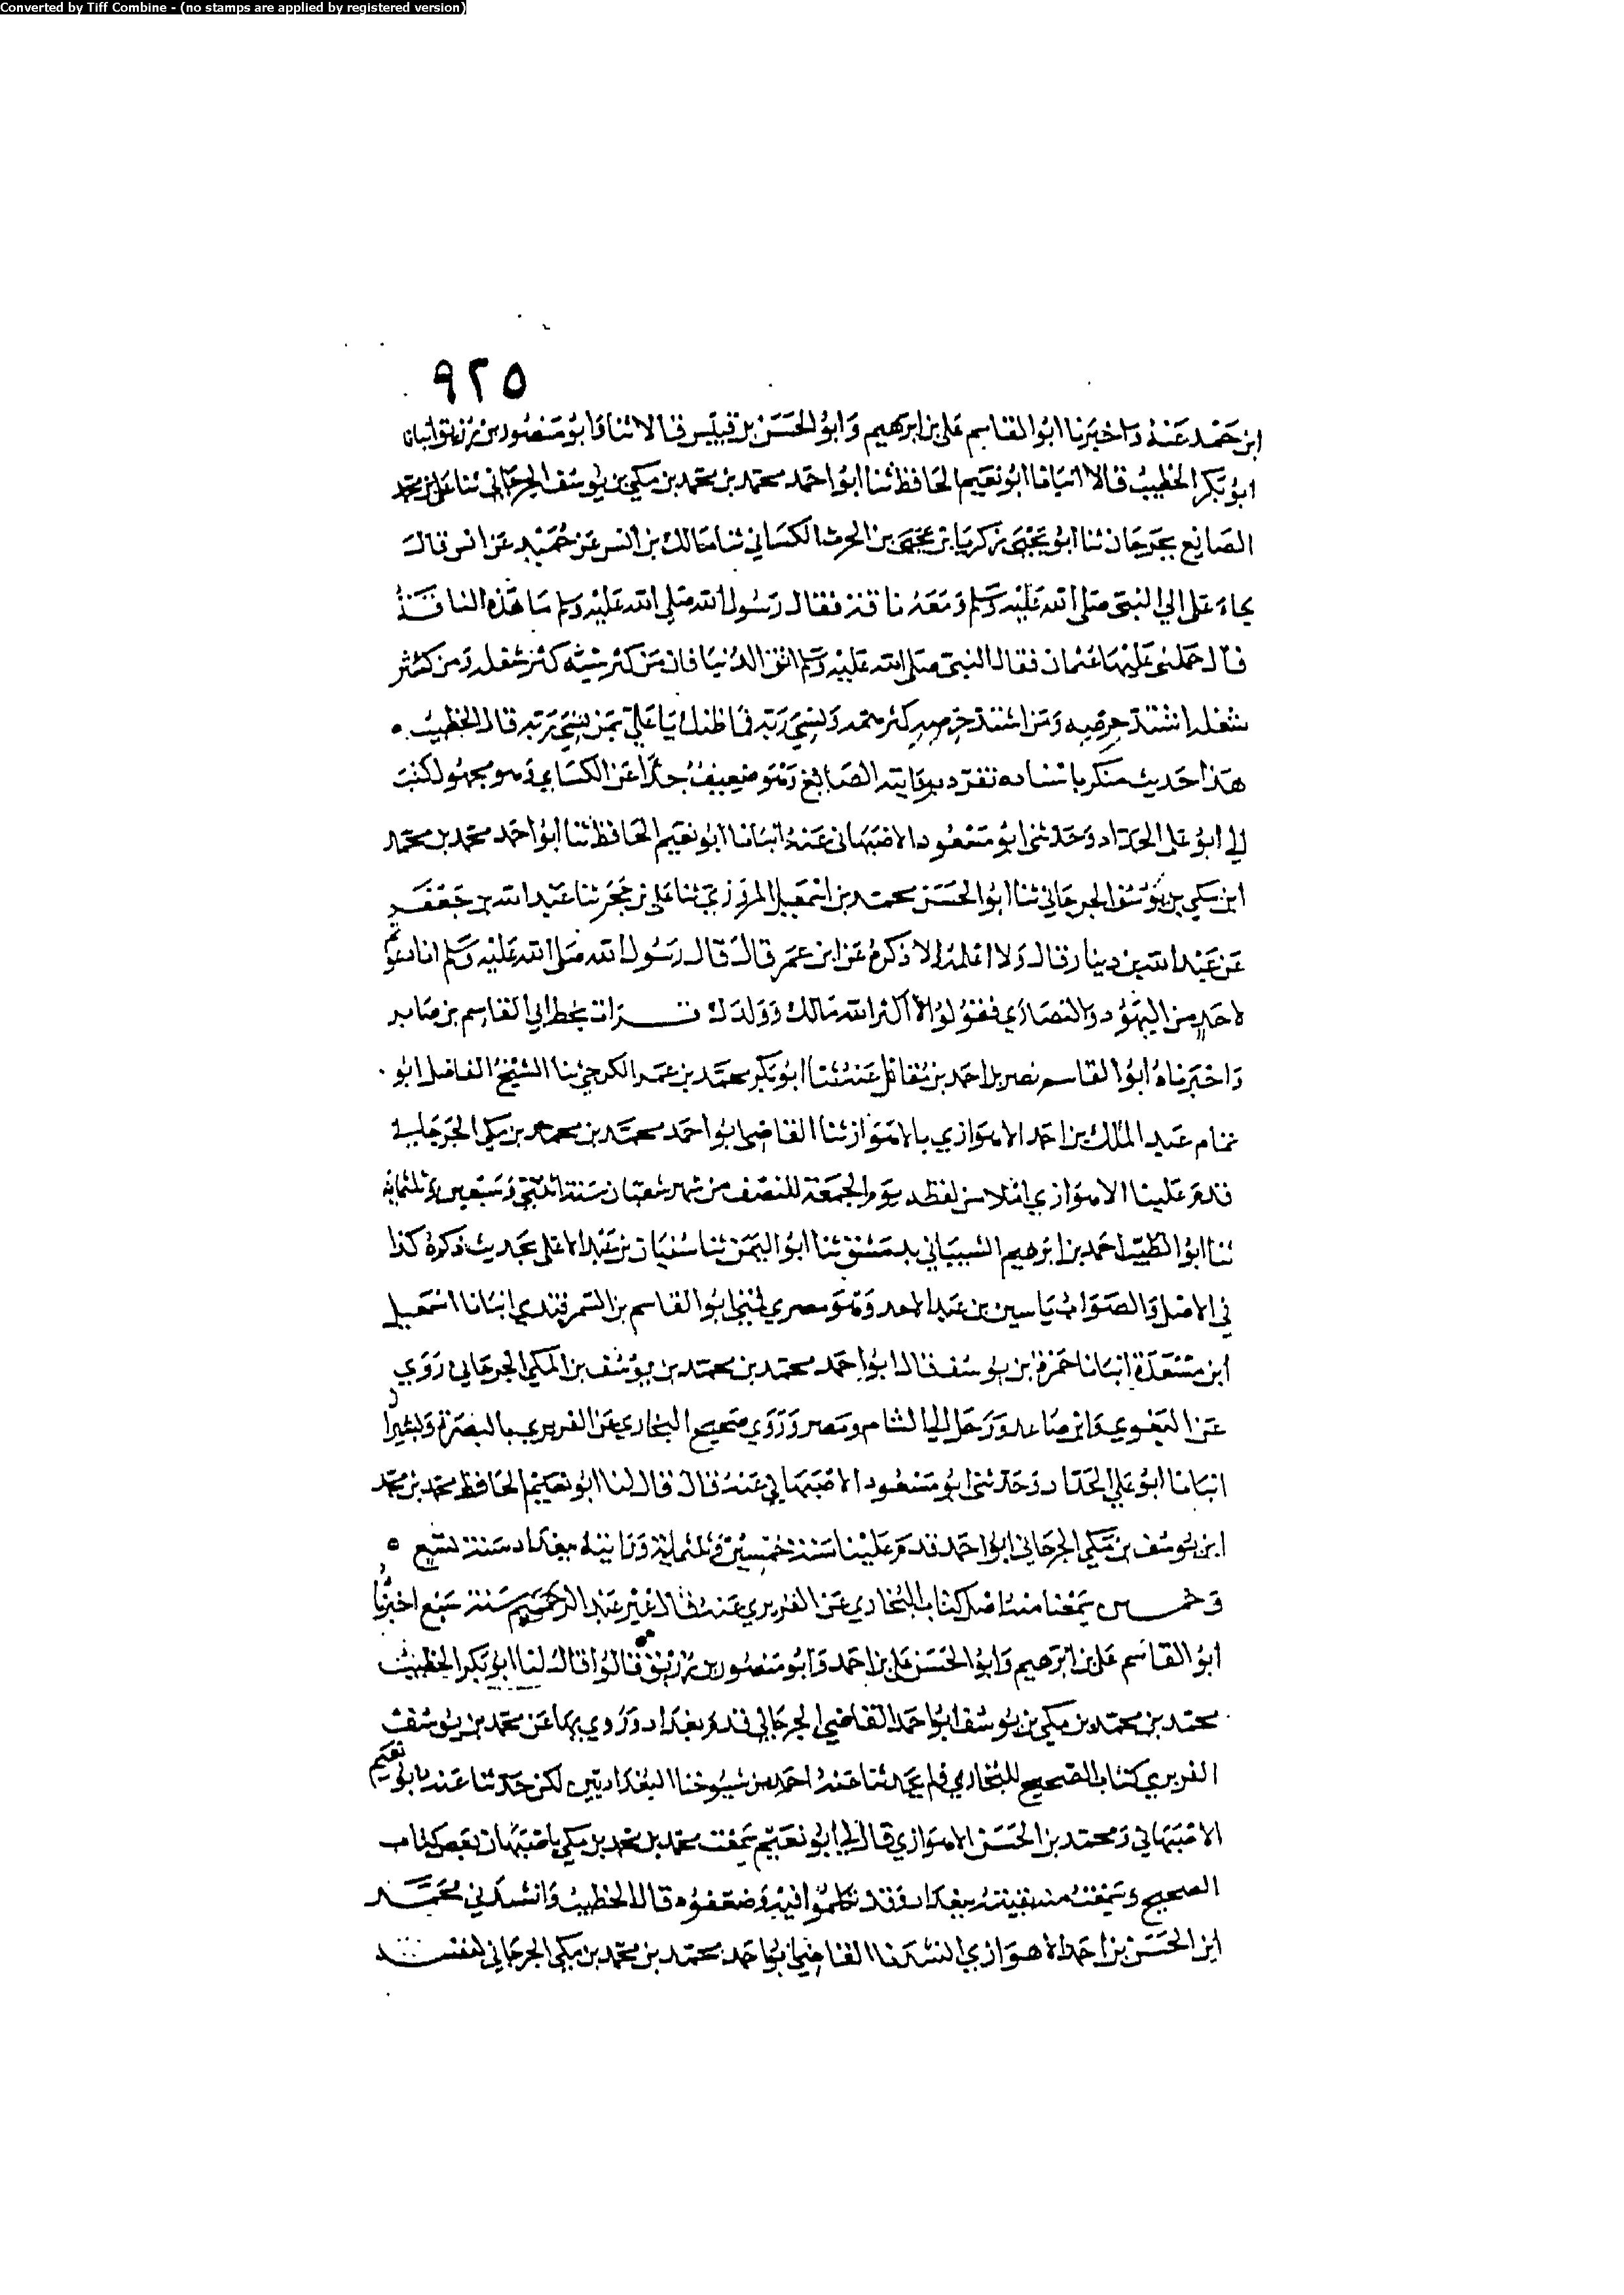 Converted by Tiff Combine - (no stamps are applied by registered version)
٩٢٥
ابن حمد عنه واخبرنا ابوا القاسم علي بن ابرهيم وابو الحسن بن قبيس قالا ثنا وابو منصور بن زريق انبانا
ابو بكر الخطيب قالا انبانا ابو نعيم الحافظ ثنا ابوا احمد محمد بن محمد بن مكي بن يوسف الجرجاني ثنا علي بن محمد
الصايغ بجرجان ثنا ابو يحيى زكريا بن يحيى بن الحرث الكسائي ثنا مالك بن انس عن حميد عن انس قال
جاء علي الي النبي صلى الله عليه وسلم ومعه ناقة فقال رسول الله صلى الله عليه وسلم ما هذه الناقة
قال حملني عليها عثمان فقال النبي صلى الله عليه وسلم اتق الدنيا فان من كثر شيئه كثر شغله ومن كثر
شغله اشتد حرصه ومن اشتد حرصه كثر همه ونسي ربه فما ظنك يا علي بمن نسي ربه قال الخطيب
هذا حديث منكر باسناده تفرد بروايته الصايغ وهو ضعيف جدا عن الكساي وهو مجهول كتب
الي ابو علي الحداد وحدثني ابو مسعود الاصبهاني عنه انبانا ابو نعيم الحافظ ثنا ابوا احمد محمد بن محمد
ابن مكي بن يوسف الجرجاني ثنا ابوا الحسن محمد بن اسمعيل المروزي ثنا علي بن حجر ثنا عبد الله بن جعفر
عن عبد الله بن دينار قال ولا اعلمه الا ذكره عن ابن عمر قال قال رسول الله صلى الله عليه وسلم اذا دعوتم
لاحد من اليهود والنصاري فقولوا اكثر الله مالك وولدك قرات بخط ابي القاسم بن صابر
واخبرناه ابوا القاسم نصر بن احمد بن مقاتل عنه ثنا ابو بكر محمد بن عمر الكرجي ثنا الشيخ الفاضل ابو
تمام عبد الملك بن احمد الاهوازي بالاهواز ثنا القاضي ابوا احمد محمد بن محمد بن مكي الجرجاني
قدم علينا الاهوازي املا من لفظه يوم الجمعة للنصف من شهر شعبان سنة اثنتي وسبعين وثلثمائة
ثنا ابوا الطيب احمد بن ابرهيم الشيباني بدمشق ثنا ابوا اليمن ثنا سفيان بن عبد الاعلى بحديث ذكره كذا
في الاصل والصواب ياسين بن عبد الاحد وهو مصري اخبرنا ابوا القاسم بن السمرقندي انبانا اسمعيل
ابن مسعدة انبانا حمزة بن يوسف قال ابوا احمد محمد بن محمد بن يوسف بن المكي الجرجاني روي
عن البغوي وابن صاعد ورحل الي الشام ومصر وروي صحيح البخاري عن الفربري بالبصرة وبشيراز
انبانا ابو علي الحداد وحدثني ابو مسعود الاصبهاني عنه قال قال لنا ابو نعيم الحافظ محمد بن محمد
ابن يوسف بن مكي الجرجاني ابوا احمد قدم علينا سنة خمسين وثلثماية وراتيه ببغداد سنة تسع
وخمسين سمعنا منه اصل كتاب البخاري عن الفربري عنه قال غير عبد الرحيم سنة سبع اخبرنا
ابو القاسم علي بن ابرهيم وابوا الحسن علي بن احمد وابو منصور بن زريق قالوا قال لنا ابو بكر الخطيب
محمد بن محمد بن مكي بن يوسف ابوا احمد القاضي الجرجاني قدم بغداد وروي بها عن محمد بن يوسف
الفربري كتاب الصحيح للبخاري فلم يحدثنا عنه احد من شيوخنا البغداديين لكن حدثنا عنه ابو نعيم
الاصبهاني ومحمد بن الحسن الاهوازي قال لي ابو نعيم سمعت محمد بن محمد بن مكي باصبهان بعض كتاب
الصحيح وسمعت منه بقيته ببغداد وقد تكلموا فيه وضعفوه قال الخطيب وانشدني محمد
ابن الحسن بن احمد الاهوازي انشدنا القاضي ابوا احمد محمد بن محمد بن مكي الجرجاني لنفسه